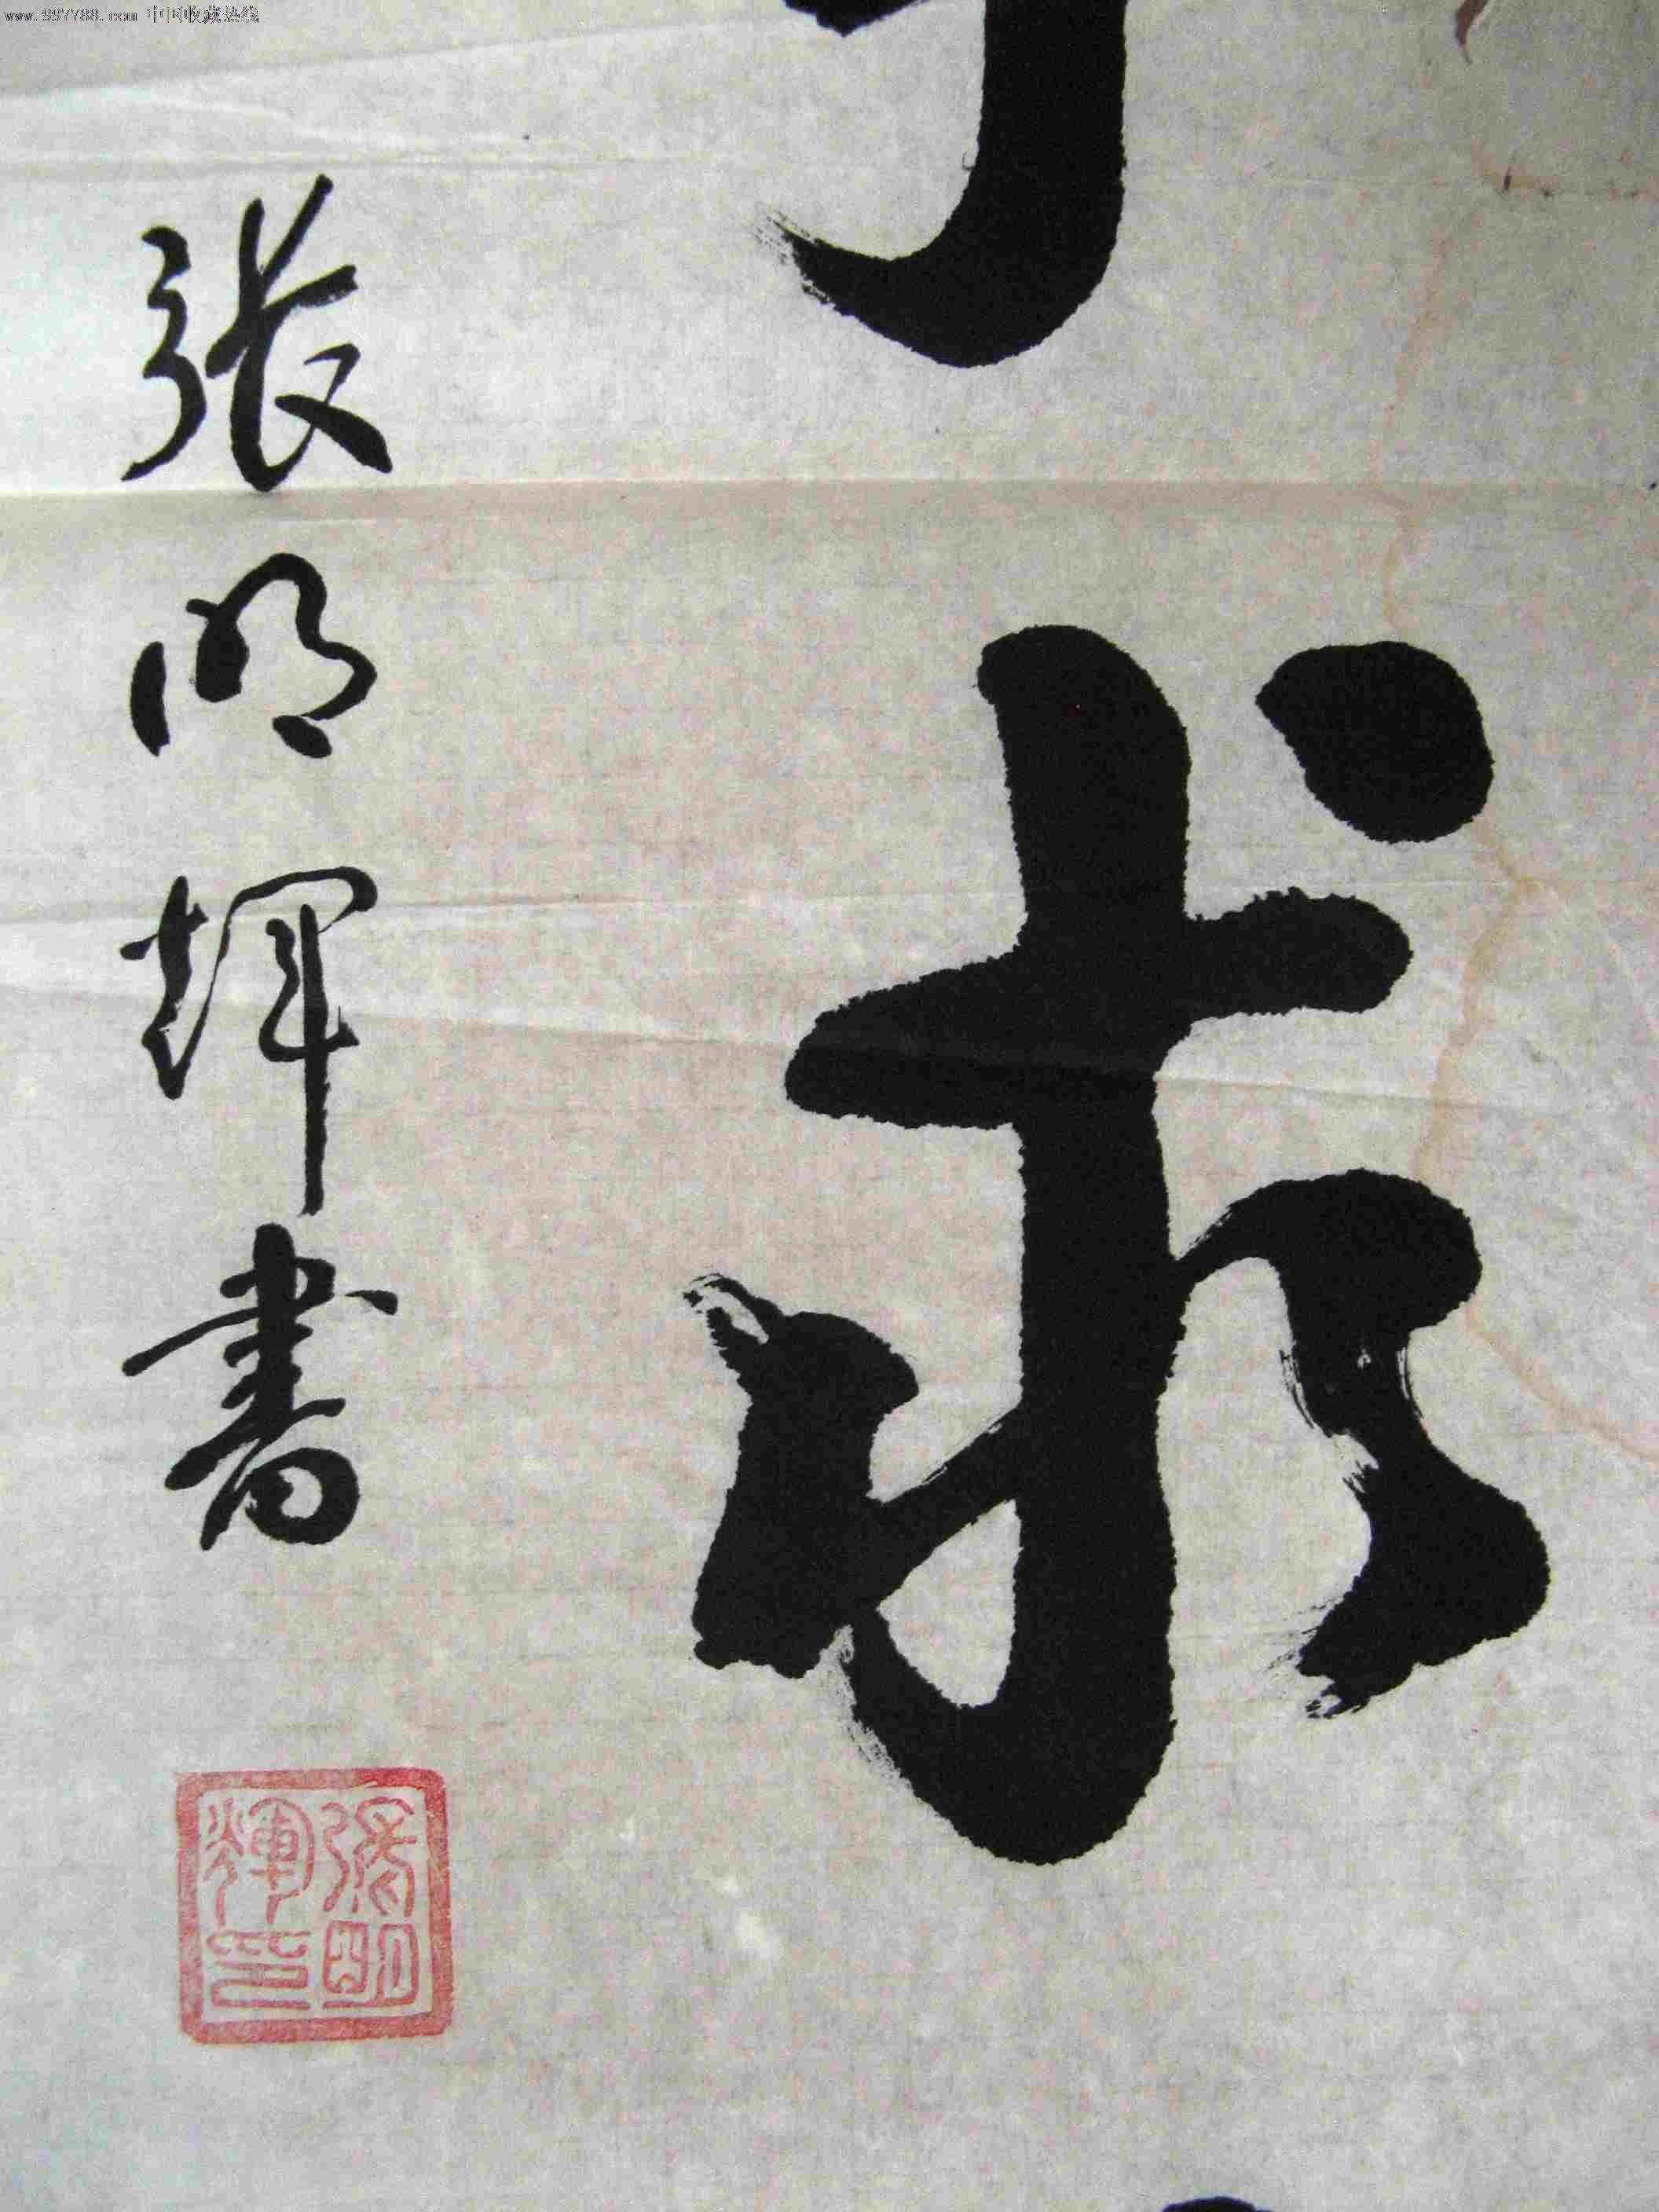 www.997788.com 中国收藏热线
求
张明辉書
張明輝印